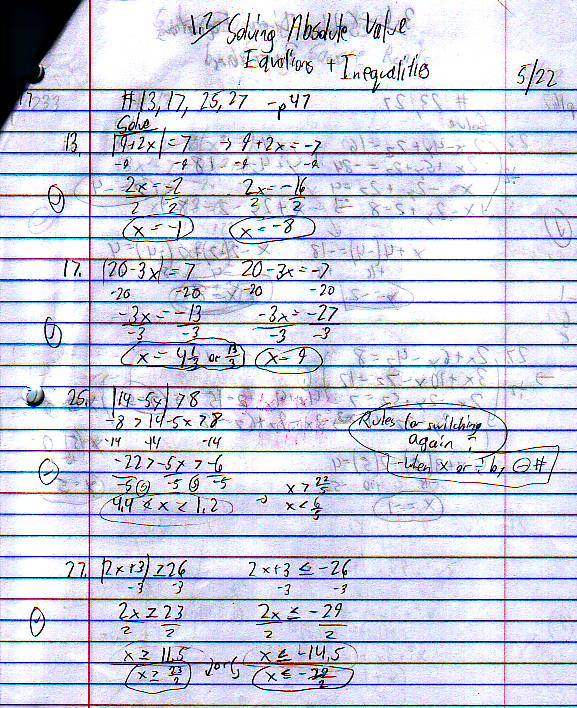 1.7 Solving Absolute Value
Equations + Inequalities
5/22
#13, 17, 25, 27 - p47
Solve
13. |9+2x| = 7 → 9+2x = -7
-9 -9 -9 -9
2x = -2 2x = -16
2 2 2 2
x = -1 x = -8
17. |20-3x| = 7 20-3x = -7
-20 -20 -20 -20
-3x = -13 -3x = -27
-3 -3 -3 -3
x = 4 1/3 or 13/3 x = 9
25. |14-5x| > 8
-8 > 14-5x > 8
-14 -14 -14
-22 > -5x > -6
-5 -5 -5
4.4 < x < 1.2
x > 22/5
x < 6/5
Rules for switching
again?
- when x or ÷ by ⊖ #
27. |2x+3| ≥ 26 2x+3 ≤ -26
-3 -3 -3 -3
2x ≥ 23 2x ≤ -29
2 2 2 2
x ≥ 11.5 or x ≤ -14.5
x ≥ 23/2 x ≤ -29/2